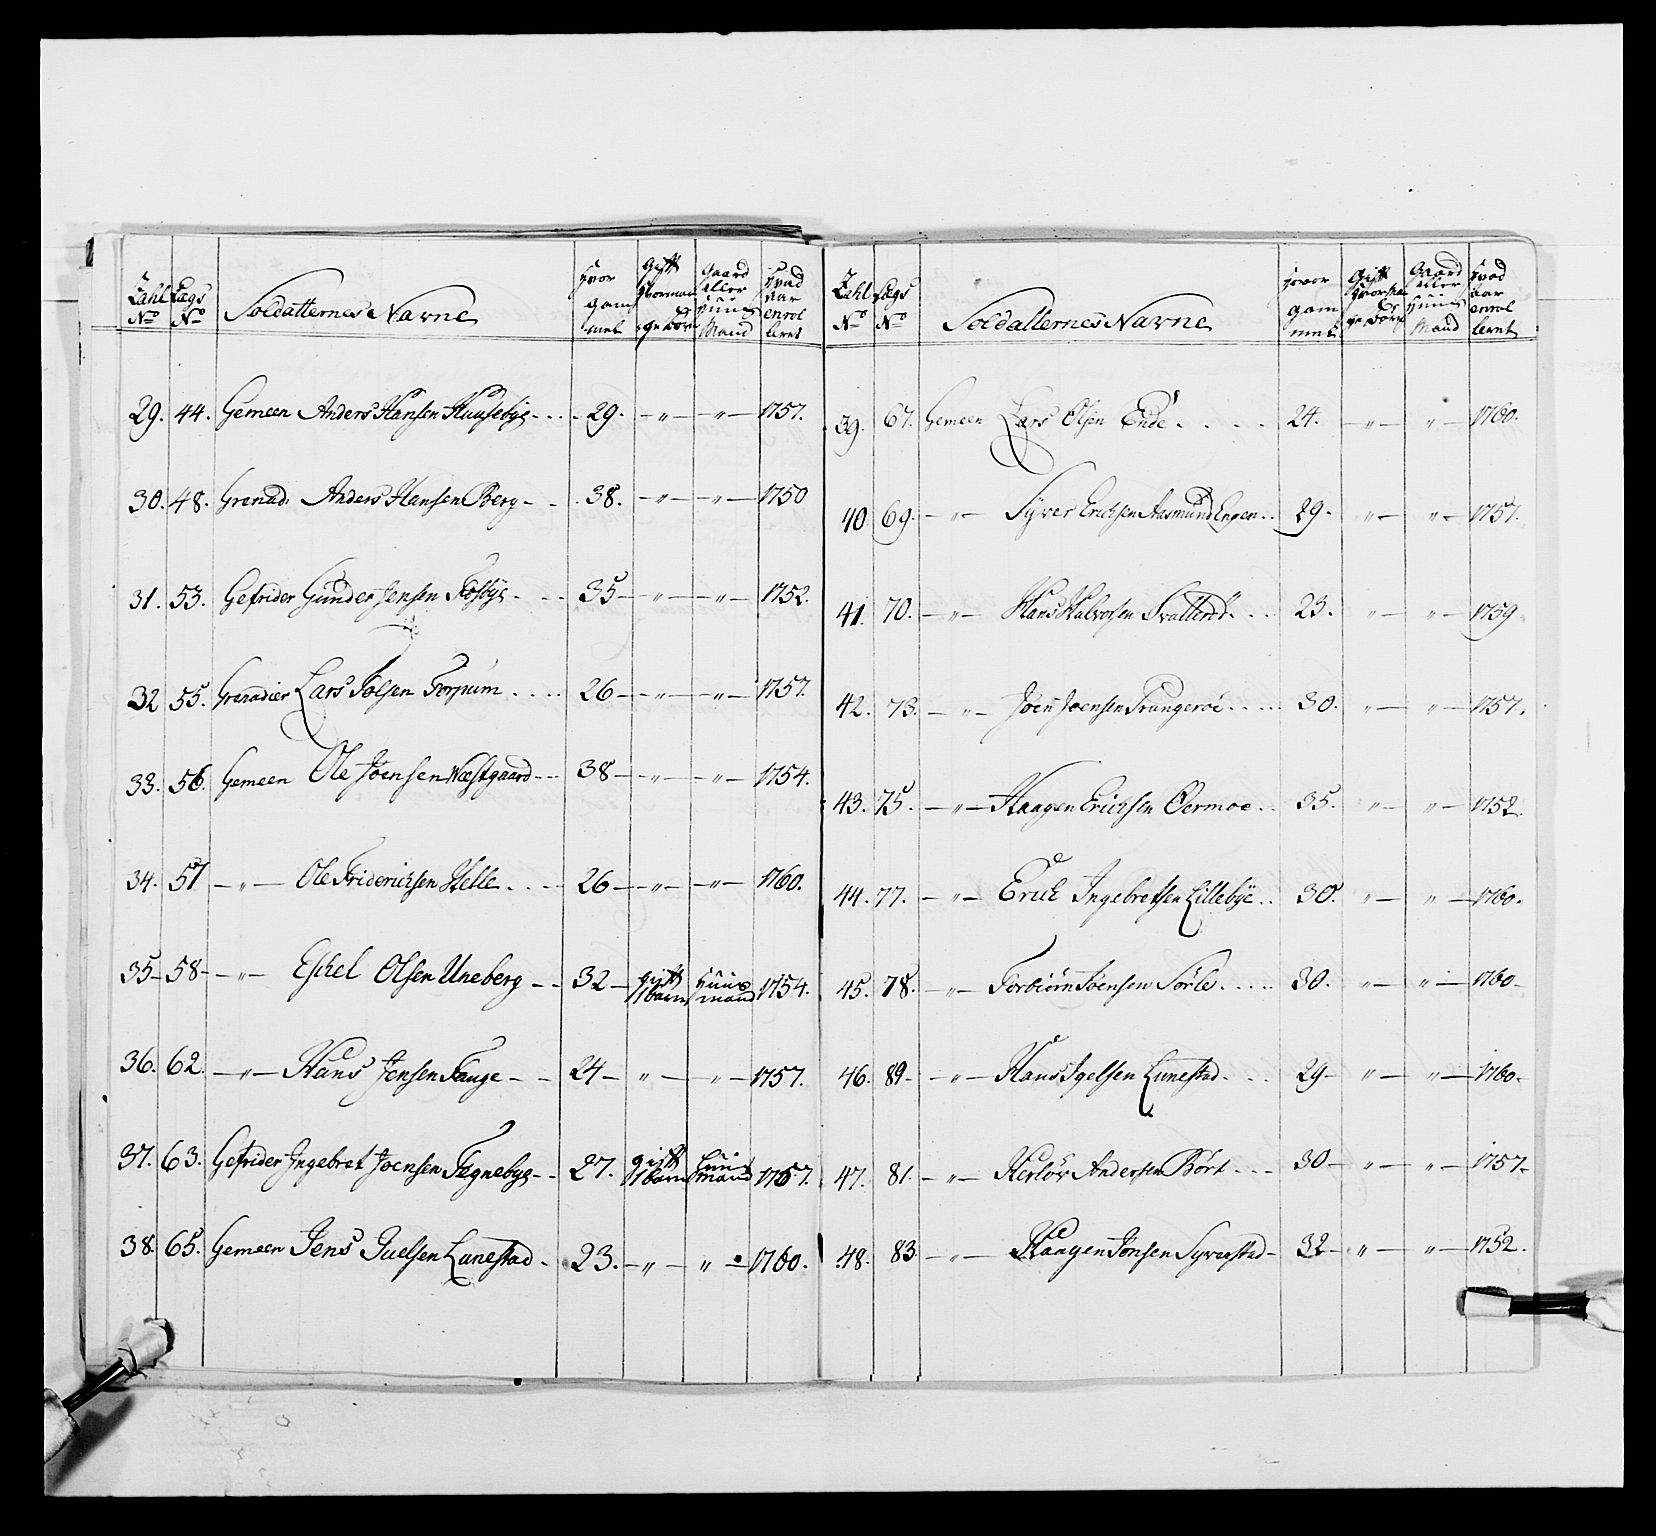 Zahl No | Lægs No | Soldatternes Navne | Hvor gam mel | Gift Hvormange Børn | Gaard Eller Huus Mand | Hvad Aar enrol leret
29. 44. Gemeen Anders Hansen Huusebÿe - 29. - " - " - 1757.
30. 48. Grenad. Anders Hansen Berg - 38. - " - " - 1750
31. 53. Gefrider Gunder Jensen Fosbÿe - 35 - " - " - 1752.
32 55. Grenadier Lars Tolsen Torpum - 26 - " - " - 1757.
33. 56. Gemeen Ole Joensen Næstgaard - 38 - " - " - 1754.
34. 57 - " - Ole Friderichsen Helle - 26 - " - " - 1760.
35 - 58 - " - Eskel Olsen Uneberg - 32 - gift 1 barn Huus mand 1754.
36. 62. - " - Hans Jensen Tange - 24 - " - " - 1757.
37. 63. Gefrider Ingebret Joensen Tegnebye - 27. gift 1 barn Huus mand 1757.
38. 65. Gemeen Jens Juelsen Lunestad - 23. - " - " - 1760.
Zahl No | Lægs No | Soldatternes Navne | Hvor gam mel | Gift Hvormange Børn | Gaard Eller Huus Mand | Hvad Aar enrol leret
39. 67. Gemeen Lars Olsen Ende - 24. - " - " - 1760.
40 69. - " - Syver Erichsen Aasmund Engen - 29 - " - " - 1757.
41. 70. - " - Hans Halvorsen Svatterød - 23. " - " - 1759
42. 73. - " - Joen Joensen Prangeroe - 30. " - " - 1757.
43. 75. - " - Haagen Erichsen Oermoe - 35. " - " - 1752.
44. 77. - " - Erich Ingebretsen Lillebÿe - 30. " - " - 1760.
45. 78. - " - Torbiørn Joensen Sørle - 30. " - " - 1760 -
46. 89 - " - Hans Lunestad - 29 - " - " - 1760 -
47. 81. - " - Herlov Andersen Bört - 30 - " - " - 1757 -
48. 83 - " - Haagen Jonsen Syverstad - 32 - " - " - 1752.